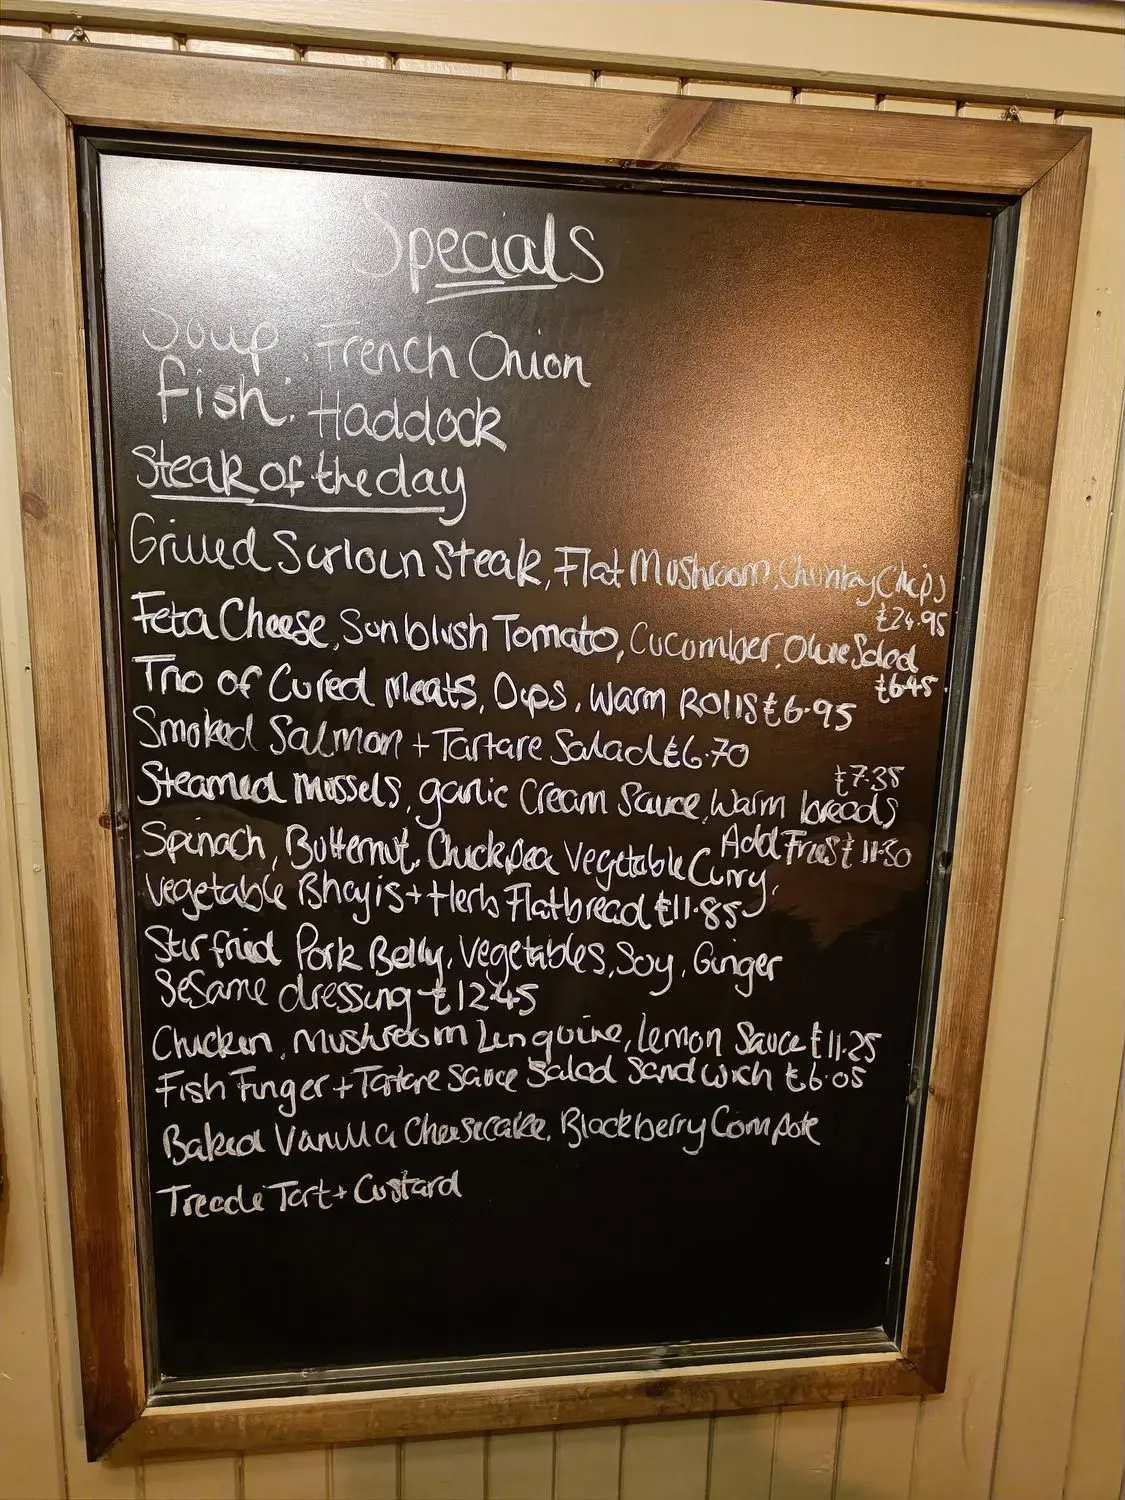 Specials
Soup: French Onion
Fish: Haddock
Steak of the day
Grilled Sirloin Steak, Flat Mushroom, Chunky Chips
£24.95
Feta Cheese, Sunblush Tomato, Cucumber, Olive Salad
£6.45
Trio of Cured Meats, Dips, Warm Rolls £6.95
Smoked Salmon + Tartare Salad £6.70
£7.35
Steamed Mussels, garlic Cream Sauce, Warm breads
Add Fries £11.30
Spinach, Butternut, Chickpea Vegetable Curry,
Vegetable Bhajis + Herb Flatbread £11.85
Stir fried Pork Belly, Vegetables, Soy, Ginger
Sesame dressing £12.45
Chicken, Mushroom Linguine, Lemon Sauce £11.25
Fish Finger + Tartare Sauce Salad Sandwich £6.05
Baked Vanilla Cheesecake, Blackberry Compote
Treacle Tart + Custard